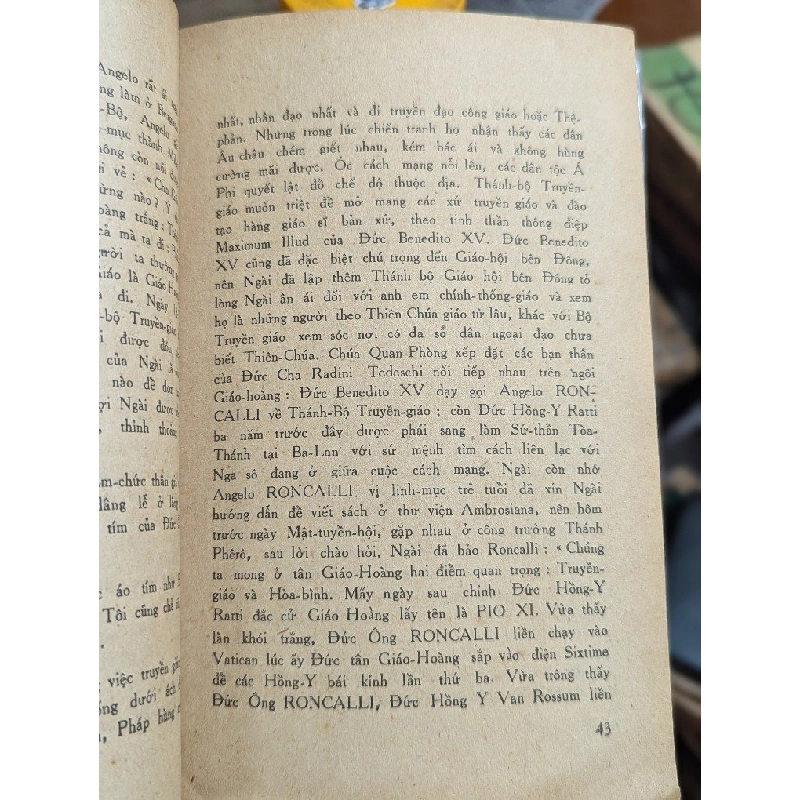 Angelo rất
ng làm ở
-Bộ, Angelo
-mục thành
ông còn nói
i về : « Con
ừng nào ? Y,
hoàng trắng :
cả mà ta đi :
ười ta thường
iáo là Giác
a đi. Ngày
-bộ Truyền-
i được
của Ngài
nào để đón
ợi Ngài được
, thỉnh thoảng
m-chức thần
lâng lễ ở
tím của Đức
c áo tím như
Tôi cũng chế
việc truyền
ống dưới ách
n, Pháp hàng
nhất, nhân đạo nhất và đi truyền đạo công giáo hoặc Thệ-
phản. Nhưng trong lúc chiến tranh họ nhận thấy các dân
Âu châu chém giết nhau, kém bác ái và không hùng
cường mãi được. Óc cách mạng nổi lên, các dân tộc Á
Phi quyết lật đổ chế độ thuộc địa. Thánh-bộ Truyền-
giáo muốn triệt để mở mang các xứ truyền giáo và đào
tạo hàng giáo sĩ bản xứ, theo tinh thần thông điệp
Maximum Illud của Đức Benedito XV. Đức Benedito
XV cũng đã đặc biệt chú trọng đến Giáo-hội bên Đông,
nên Ngài đã lập thêm Thánh bộ Giáo hội bên Đông tỏ
lòng Ngài ân ái đối với anh em chính-thống-giáo và xem
họ là những người theo Thiên Chúa giáo từ lâu, khác với Bộ
Truyền giáo xem sóc nơi có đa số dân ngoại đạo chưa
biết Thiên-Chúa. Chúa Quan-Phòng xếp đặt các bạn thân
của Đức Cha Radini Tedeschi nối tiếp nhau trên ngôi
Giáo-hoàng : Đức Benedito XV dạy gọi Angelo RON-
CALLI về Thánh-Bộ Truyền-giáo ; còn Đức Hồng-Y Ratti
ba năm trước đây được phái sang làm Sứ-thần Tòa-
Thánh tại Ba-Lan với sứ mệnh tìm cách liên lạc với
Nga sô đang ở giữa cuộc cách mạng. Ngài còn nhớ
Angelo RONCALLI vị linh-mục trẻ tuổi đã xin Ngài
hướng dẫn để viết sách ở thư viện Ambrosiana, nên hôm
trước ngày Mật-tuyển-hội, gặp nhau ở công trường Thánh
Phêrô, sau lời chào hỏi, Ngài đã bảo Roncalli : «Chúng
ta mong ở tân Giáo-Hoàng hai điểm quan trọng : Truyền-
giáo và Hòa-bình. Mấy ngày sau chính Đức Hồng-Y
Ratti đắc cử Giáo Hoàng lấy tên là PIO XI. Vừa thấy
làn khói trắng, Đức Ông RONCALLI liền chạy vào
Vatican lúc ấy Đức tân Giáo-Hoàng sắp vào điện Sixtime
để các Hồng-Y bái kính lần thứ ba. Vừa trông thấy
Đức Ông RONCALLI, Đức Hồng Y Van Rossum liền
43